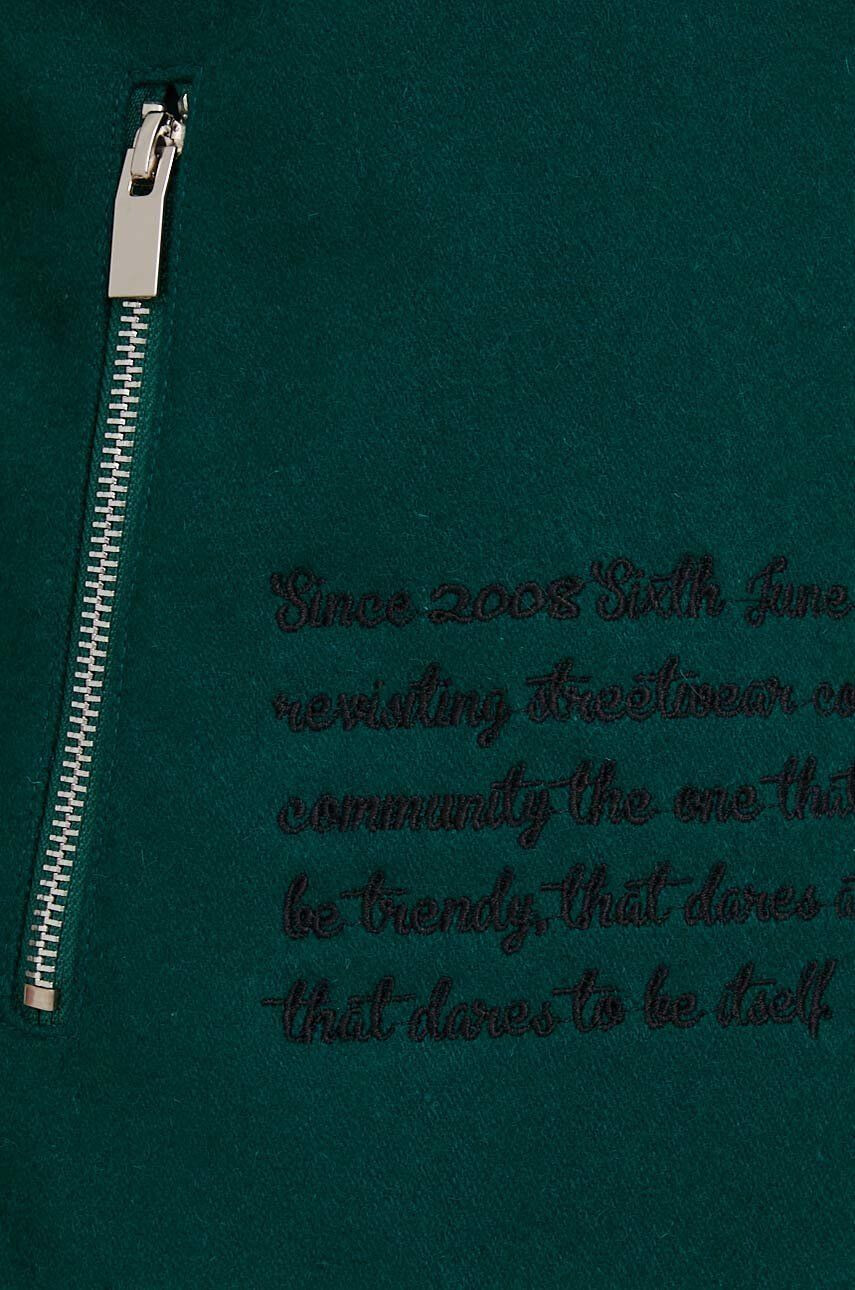 Since 2008 Sixth June
revisiting streetwear co
community the one that
be trendy, that dares a
that dares to be itself.